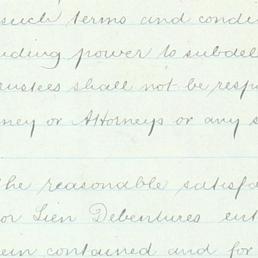 such terms and condi
uding power to subdel
rustees shall not be resp
rney or Attorneys or any s
the reasonable satisfa
or Lien Debentures ent
ein contained and for